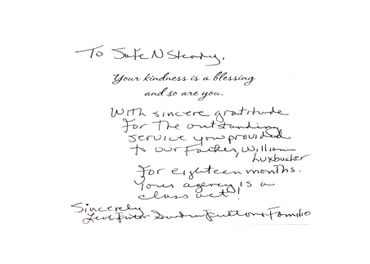 To Safe N Steady,
Your kindness is a blessing
and so are you.
With sincere gratitude
for the outstanding
service you provided
to our Father, William
Luxbacher
For eighteen months.
Your agency is a
class act!
Sincerely
Families